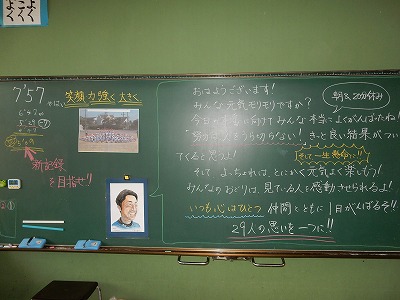 7'57
では、笑顔・力強く 大きく
新記録
を目指せ!!
朝&20分休み
おはようございます!
みんな元気モリモリですか?
今日の本番に向けてみんな本当によくがんばったね!
「努力は人をうら切らない!」きっと良い結果がつい
てくると思うよ!
そして一生懸命に!!
そして よっちょれは、とにかく元気よく楽しもう!
みんなのおどりは、見ている人を感動させられるよ!
いつも心はひとつ 仲間とともに1日がんばるぞ!!
29人の思いを一つに!!